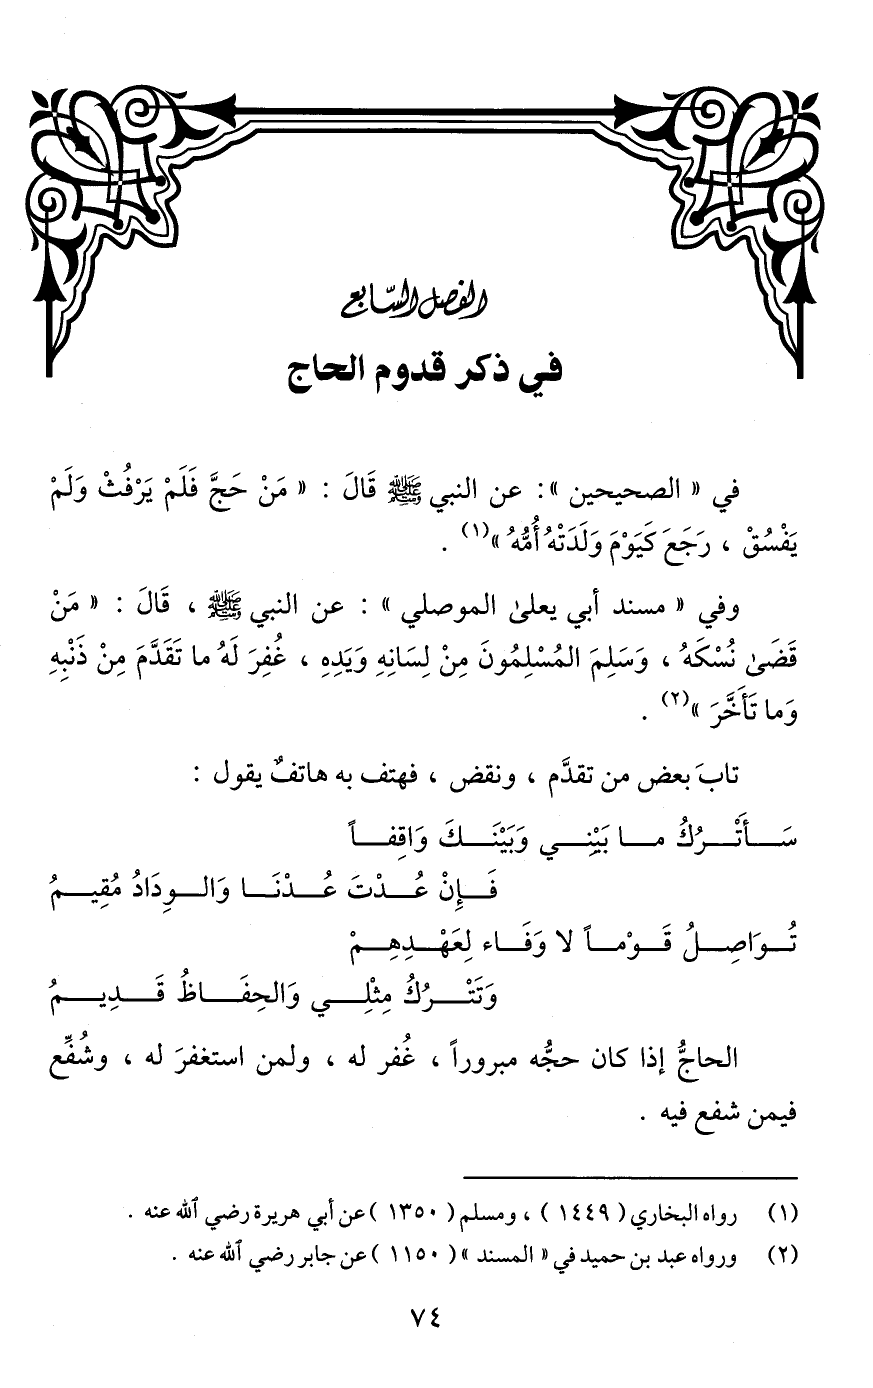 الفصل السّابع
في ذكر قدوم الحاج
في « الصحيحين »: عن النبي ﷺ قَالَ : « مَنْ حَجَّ فَلَمْ يَرْفُثْ وَلَمْ
يَفْسُقْ ، رَجَعَ كَيَوْمَ وَلَدَتْهُ أُمُّهُ »(١) .
وفي « مسند أبي يعلىٰ الموصلي » : عن النبي ﷺ ، قَالَ : « مَنْ
قَضَىٰ نُسْكَهُ ، وَسَلِمَ المُسْلِمُونَ مِنْ لِسَانِهِ وَيَدِهِ ، غُفِرَ لَهُ ما تَقَدَّمَ مِنْ ذَنْبِهِ
وَما تَأَخَّرَ »(٢) .
تابَ بعض من تقدَّم ، ونقض ، فهتف به هاتفٌ يقول :
سَـأَتْـرُكُ مـا بَيْنِـي وَبَيْنَـكَ وَاقِفـاً
فَـإِنْ عُـدْتَ عُـدْنَـا وَالـودَادُ مُقِيـمُ
تُـوَاصِـلُ قَـوْمـاً لا وَفَـاء لِعَهْـدِهِـمْ
وَتَتْـرُكُ مِثْلِـي وَالحِفَـاظُ قَـدِيـمُ
الحاجُّ إذا كان حجُّه مبروراً ، غُفر له ، ولمن استغفرَ له ، وشُفِّع
فيمن شفع فيه .
(١) رواه البخاري ( ١٤٤٩ ) ، ومسلم ( ١٣٥٠ ) عن أبي هريرة رضي ٱلله عنه .
(٢) ورواه عبد بن حميد في « المسند » ( ١١٥٠ ) عن جابر رضي ٱلله عنه .
٧٤